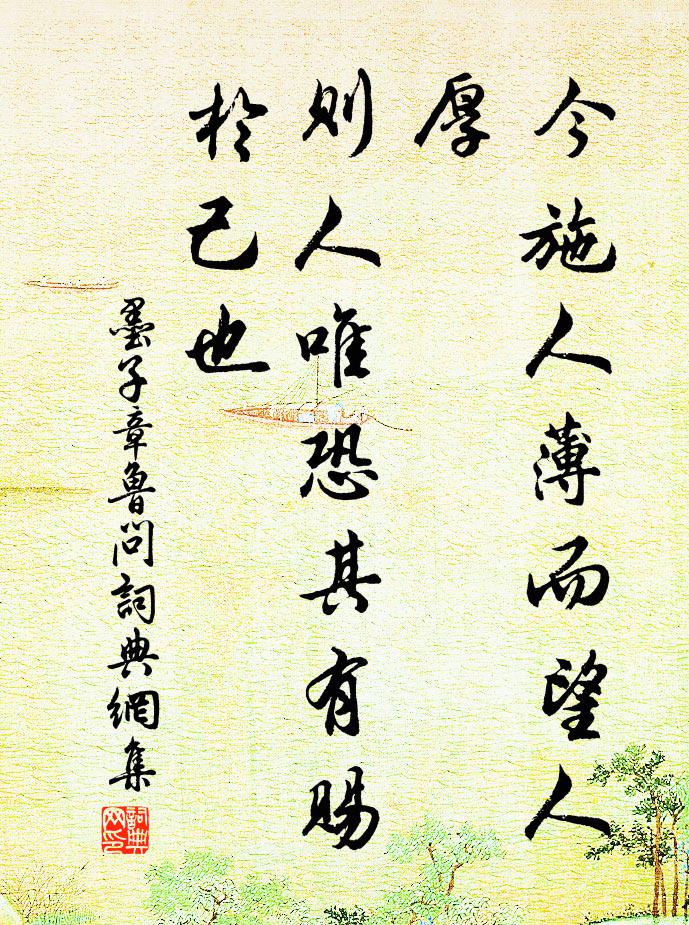 今施人薄而望人
厚
則人唯恐其有賜
於己也
墨子章魯問詞典網集
詞典
网印